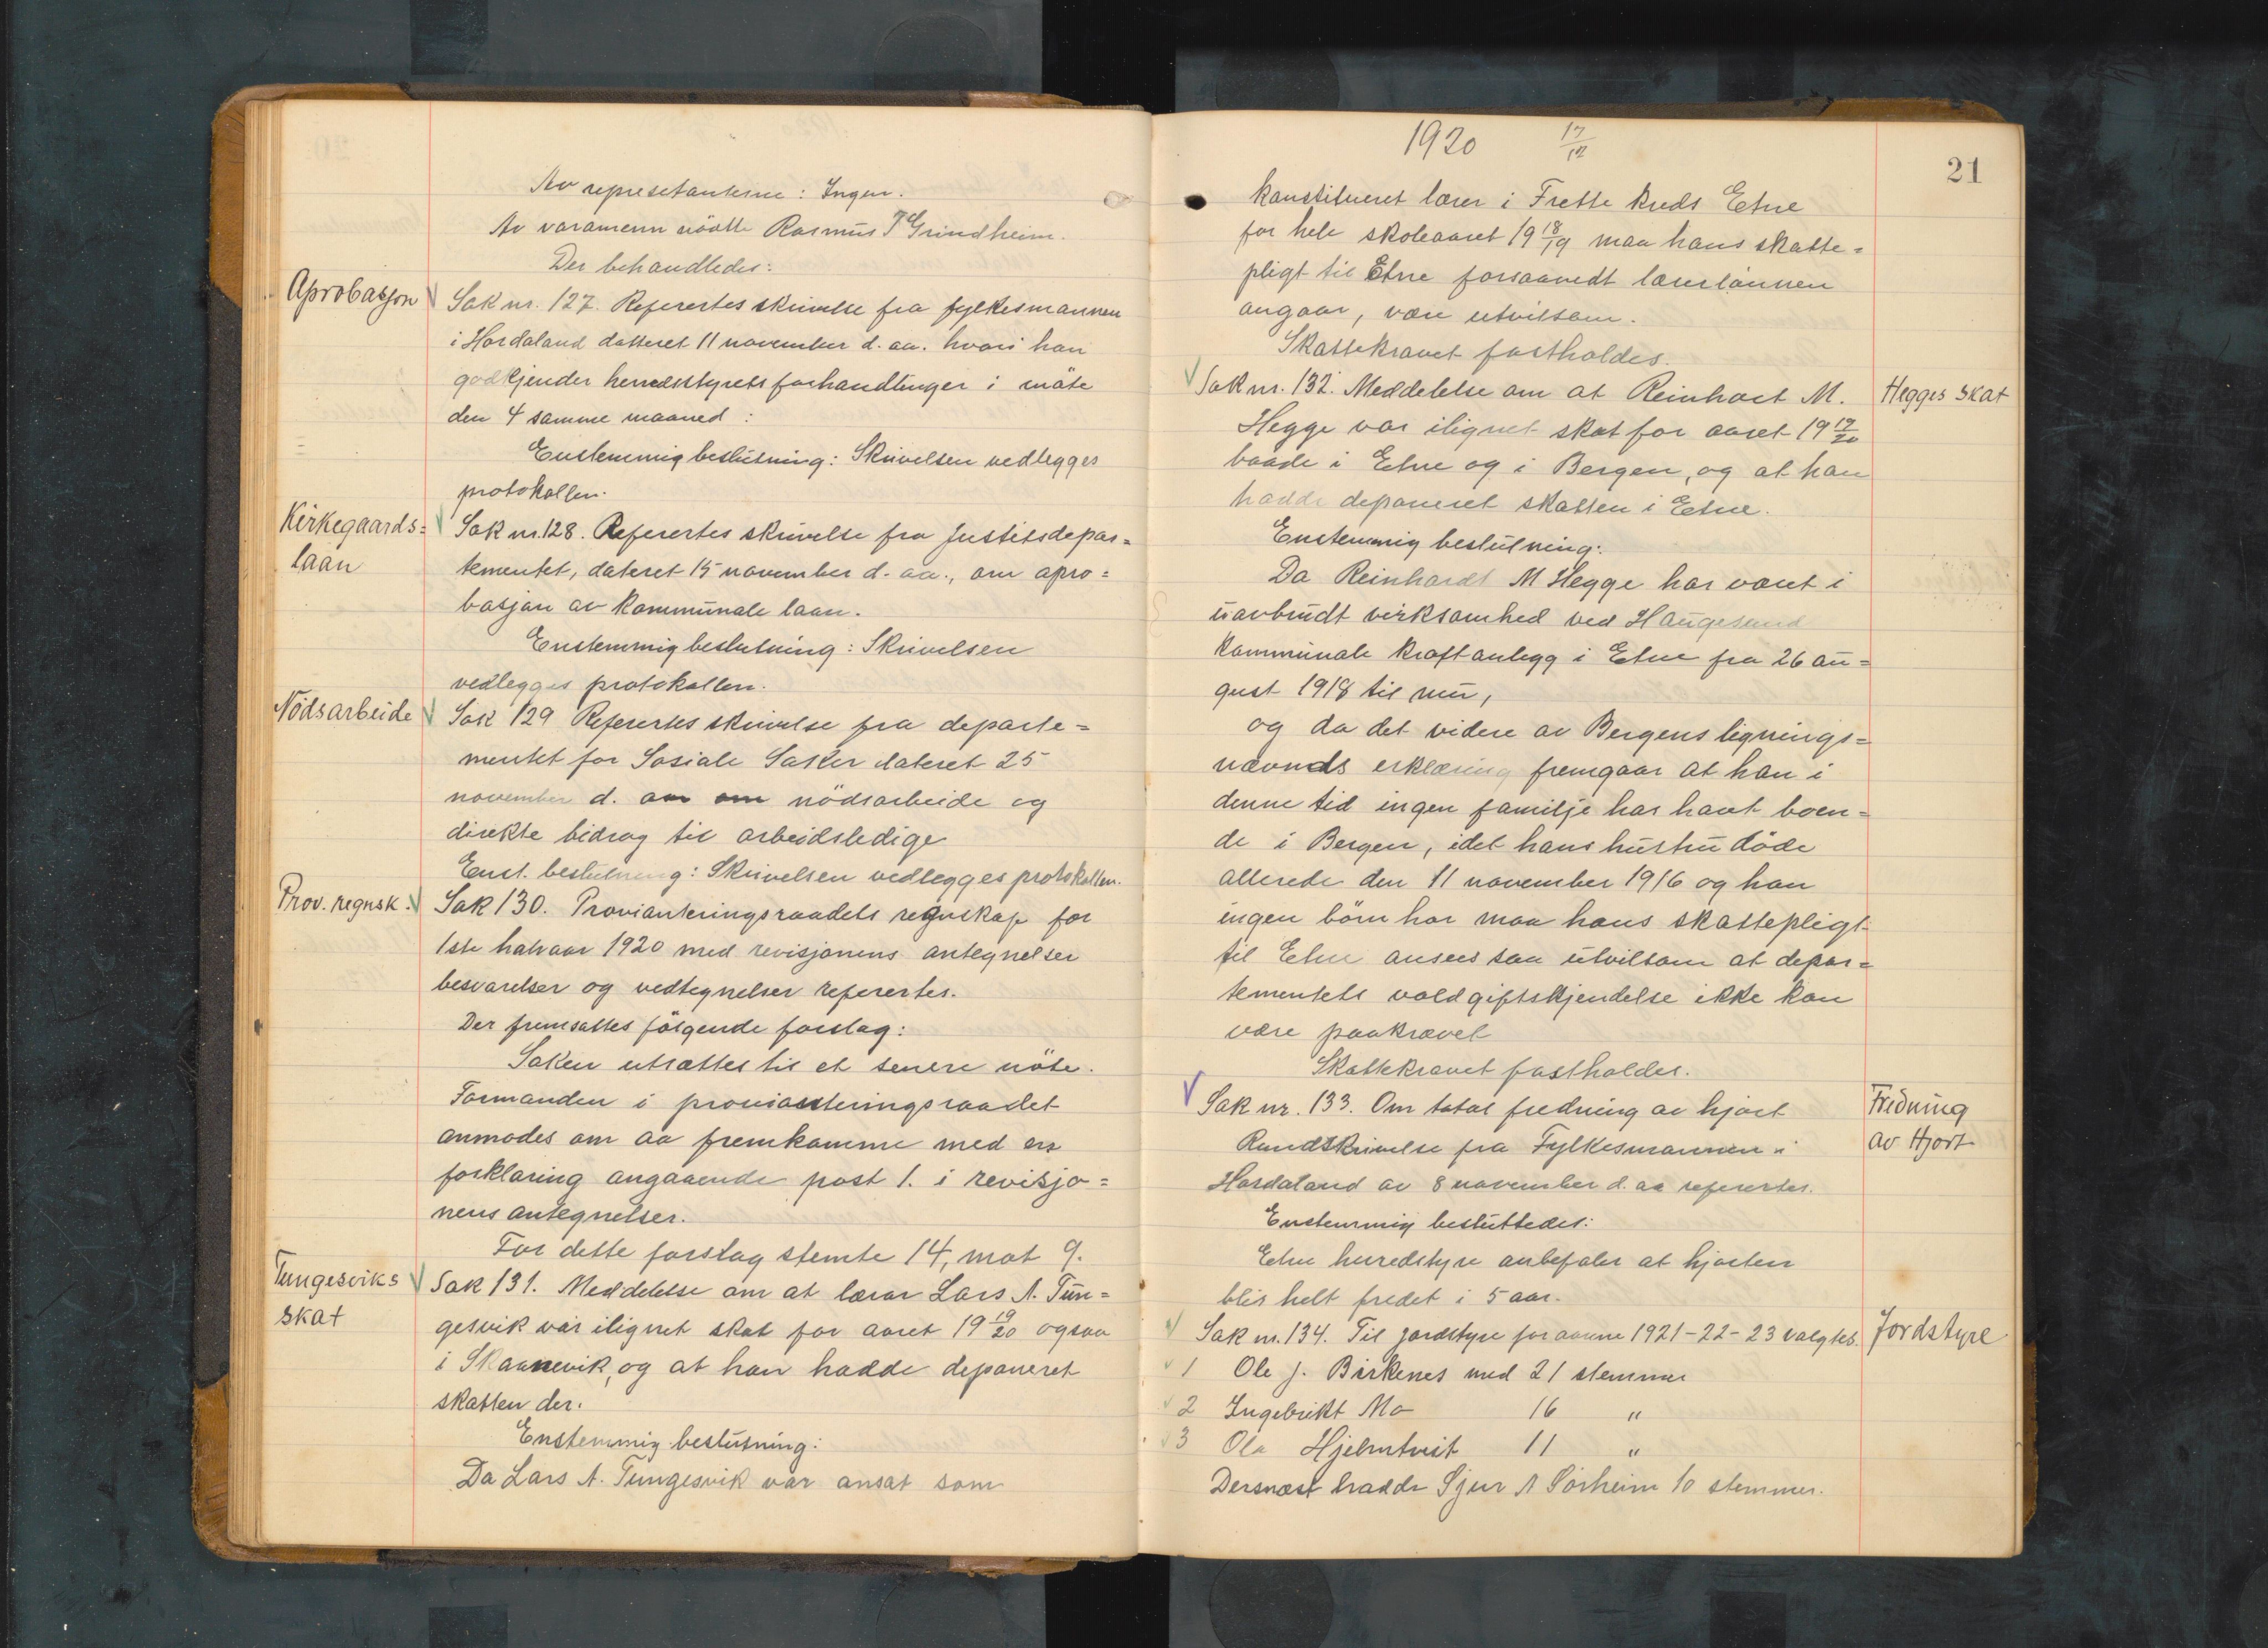 Av represetanterne: Ingen.
Av varamenn møtte Rasmus T Grindheim.
Der behandledes:
Aprobasjon
Sak nr. 127. Referertes skrivelse fra fylkesmannen
i Hordaland datteret 11 november d. aa. hvori han
godkjender herredsstyrets forhandlinger i møte
den 4 samme maaned:
Enstemmig beslutning: Skrivelsen vedlegges
protokollen.
Kirkegaards=
laan
Sak nr. 128. Referertes skrivelse fra Justitsdepar=
tementet, dateret 15 november d. aa., om apro=
basjon av kommunale laan.
Enstemmig beslutning: Skrivelsen
vedlegges protokollen.
Nödsarbeide
Sak 129 Referertes skrivelse fra departe=
mentet for Sosiale Saker dateret 25
november d. aa om nödsarbeide og
direkte bidrag til arbeidsledige
Enst. beslutning: Skrivelsen vedlegges protokollen.
Prov. regnsk.
Sak 130. Provianteringsraadets regnskap for
1ste halvaar 1920 med revisjonens antegnelser
besvarelser og vedtegnelser referertes.
Der fremsattes følgende forslag:
Saken utsættes til et senere møte.
Formanden i provianteringsraadet
anmodes om aa fremkomme med en
forklaring angaaende post 1. i revisjo=
nens antegnelser.
For dette forslag stemte 14, mot 9.
Tungesviks
skat
Sak 131. Meddelelse om at lærar Lars A. Tun=
gesvik var ilignet skat for aaret 19 19/20 ogsaa
i Skaanevik, og at han hadde deponeret
skatten der.
Enstemmig beslutning:
Da Lars A. Tungesvik var ansat som
1920 17/12
21
konstitueret lærer i Frette kreds Etne
for hele skoleaaret 19 18/19 maa hans skatte=
pligt til Etne forsaavidt lærerlönnen
angaar, være utvilsom.
Skattekravet fastholdes.
Sak nr. 132. Meddelelse om at Reinhart M.
Hegges skat
Hegge var ilignet skat for aaret 19 19/20
baade i Etne og i Bergen, og at han
hadde deponeret skatten i Etne.
Enstemmig beslutning:
Da Reinhardt M Hegge har været i
uavbrudt virksamhed ved Haugesund
kommunale kraftanlegg i Etne fra 26 au=
gust 1918 til nu,
og da det videre av Bergens lignings=
nævnds erklæring fremgaar at han i
denne tid ingen familje har havt boen=
de i Bergen, idet hans hustru döde
allerede den 11 november 1916 og han
ingen börn har maa hans skattepligt
til Etne ansees saa utvilsom at depar=
tementets voldgiftskjendelse ikke kan
være paakrævet
Skattekravet fastholdes.
Sak nr. 133. Om total fredning av hjort
Fredning
av Hjort
Rundskrivelse fra Fylkesmannen i
Hordaland av 8 november d. aa referertes.
Enstemmig besluttedes:
Etne herredstyre anbefaler at hjorten
blir helt fredet i 5 aar.
Sak nr. 134. Til jordstyre for aarene 1921-22-23 valgtes.
Jordstyre
1 Ole J. Birkenes med 21 stemmer
2 Ingebrikt Mo 16 "
3 Ola Hjelmtveit 11 "
Dersnæst hadde Sjur A Sörheim 10 stemmer.